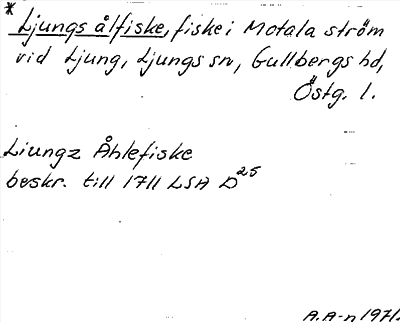 * Ljungs ålfiske, fiske i Motala ström
vid Ljung, Ljungs sn, Gullbergs hd,
Östg. l.
Liungz Åhlefiske
beskr. till 1711 LSA D25
A.A-n 1971.